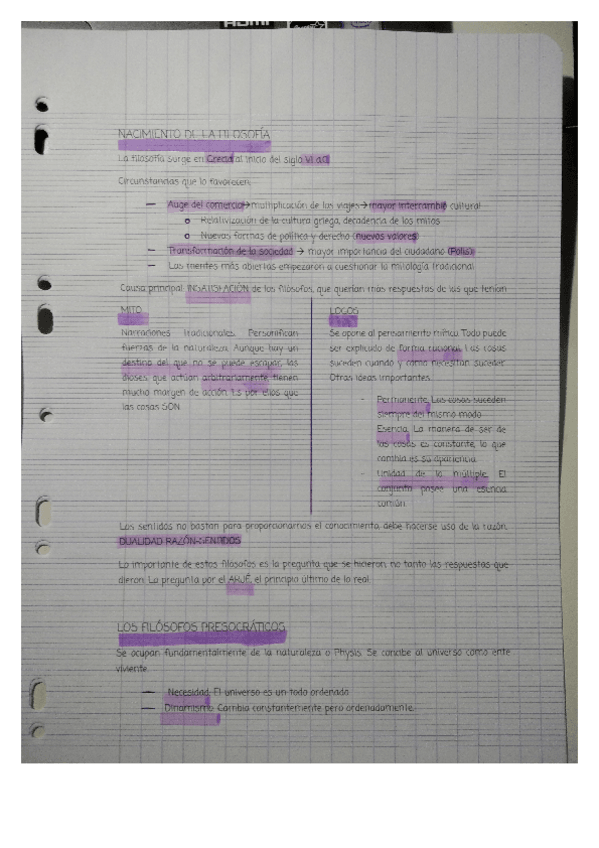 NACIMIENTO DE LA FILOSOFÍA
La filosofía surge en Grecia al inicio del siglo VI a.C.
Circunstancias que lo favorecen:
— Auge del comercio→multiplicación de los viajes→mayor intercambio cultural
o Relativización de la cultura griega, decadencia de los mitos
o Nuevas formas de política y derecho (nuevos valores)
— Transformación de la sociedad → mayor importancia del ciudadano (Polis)
— Las mentes más abiertas empezaron a cuestionar la mitología tradicional
Causa principal: INSATISFACIÓN de los filósofos, que querían más respuestas de las que tenían
MITO
Narraciones tradicionales. Personifican
fuerzas de la naturaleza. Aunque hay un
destino del que no se puede escapar, los
dioses, que actúan arbitrariamente, tienen
mucho margen de acción. Es por ellos que
las cosas SON
LOGOS
Se opone al pensamiento mítico. Todo puede
ser explicado de forma racional. Las cosas
suceden cuando y como necesitan suceder.
Otras ideas importantes:
- Permanente. Las cosas suceden
siempre del mismo modo
- Esencia. La manera de ser de
las cosas es constante, lo que
cambia es su apariencia.
- Unidad de la múltiple. El
conjunto posee una esencia
común
Los sentidos no bastan para proporcionarnos el conocimiento, debe hacerse uso de la razón.
DUALIDAD RAZÓN-SENTIDOS
Lo importante de estos filósofos es la pregunta que se hicieron, no tanto las respuestas que
dieron. La pregunta por el ARJÉ, el principio último de lo real.
LOS FILÓSOFOS PRESOCRÁTICOS
Se ocupan fundamentalmente de la naturaleza o Physis. Se concibe al universo como ente
viviente.
— Necesidad. El universo es un todo ordenado
— Dinamismo. Cambia constantemente pero ordenadamente.